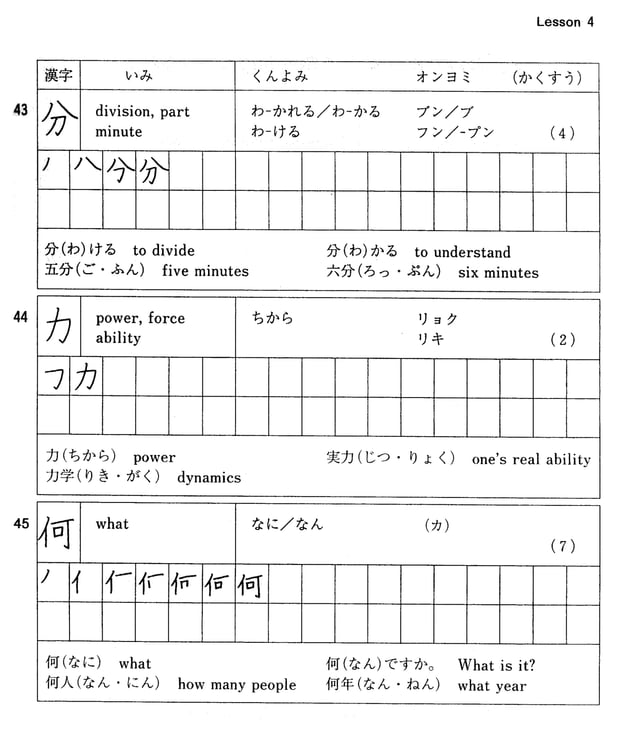 Lesson 4
漢字 いみ くんよみ オンヨミ (かくすう)
43 分 division, part わ-かれる/わ-かる ブン/ブ
minute わ-ける フン/-プン (4)
ノ 八 分 分
分(わ)ける to divide 分(わ)かる to understand
五分(ご・ふん) five minutes 六分(ろっ・ぷん) six minutes
44 力 power, force ちから リョク
ability リキ (2)
フ 力
力(ちから) power 実力(じつ・りょく) one's real ability
力学(りき・がく) dynamics
45 何 what なに/なん (カ)
(7)
ノ イ 何
何(なに) what 何(なん)ですか。 What is it?
何人(なん・にん) how many people 何年(なん・ねん) what year